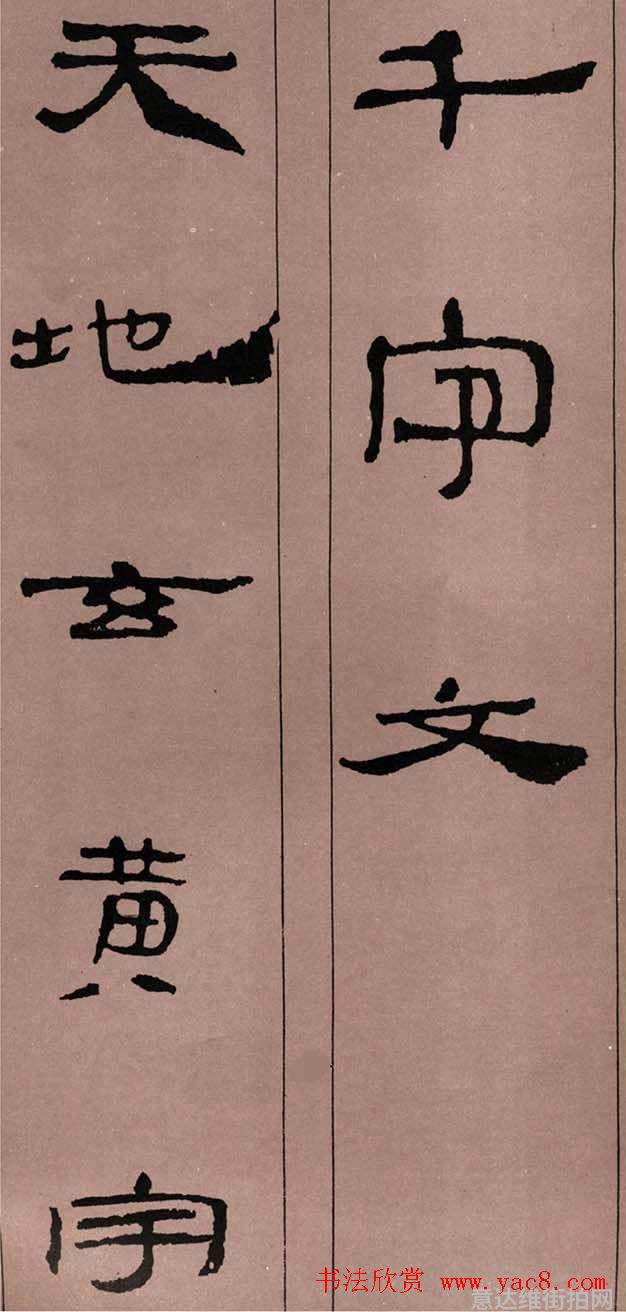 千字文
天地玄黄宇
书法欣赏 www.yac8.com
意达维街拍网